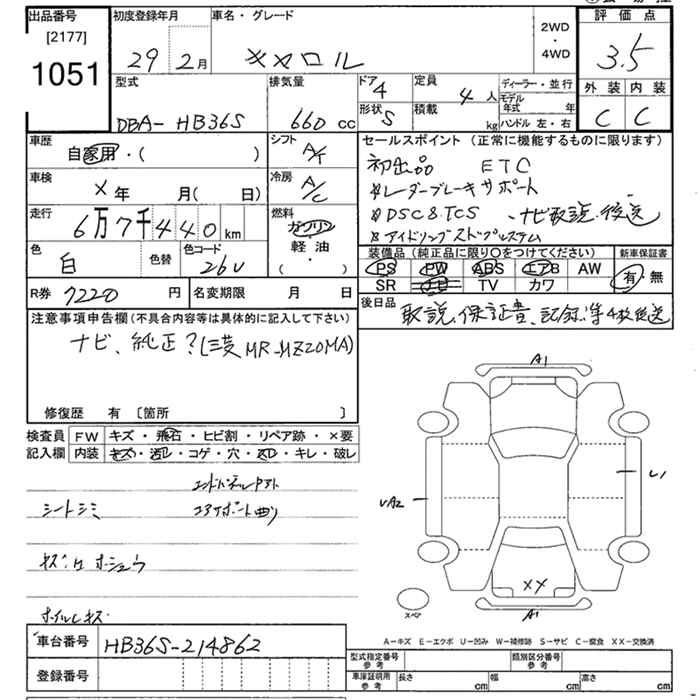 出品番号 初度登録年月 車名・グレード 2WD・4WD 評価点
[2177]
1051 29 2月 キャロル 3.5
型式 排気量 ドア 4 定員 4人 ディーラー・並行 外装 内装
DBA-HB36S 660 cc 形状 S 積載 kg モデル年式 年 C C
ハンドル 左・右
車歴 自家用・( ) シフト A/T セールスポイント (正常に機能するものに限ります)
初出品 ETC
車検 ×年 月( 日) 冷房 A/C
レーダーブレーキサポート
走行 6万7千440km 燃料 ガソリン 軽油・( )
DSC&TCS ナビ取説 後送
アイドリングストップシステム
色 白 色替 色コード 26U
装備品 (純正品に限り○をつけてください) 新車保証書
PS PW ABS エアB AW 有・無
SR TV カワ
R券 7220円 名変期限 月 日
後日品 取説、保証書、記録簿 後送
注意事項申告欄(不具合内容等は具体的に記入して下さい)
ナビ、純正?(三菱 MR-MZ20MA)
修復歴 有 〔箇所 〕
検査員記入欄 FW キズ・飛石・ヒビ割・リペア跡・×要
内装 キズ・汚レ・コゲ・穴・スレ・キレ・破レ
シートシミ
ホイルキズ
A1
U1
UA2
XX
スペア
A1
A-キズ E-エクボ U-凹み W-補修跡 S-サビ C-腐食 XX-交換済
車台番号 HB36S-214862
型式指定番号 参考 類別区分番号 参考
登録番号 車庫証明用 参考 長さ cm 幅 cm 高さ cm